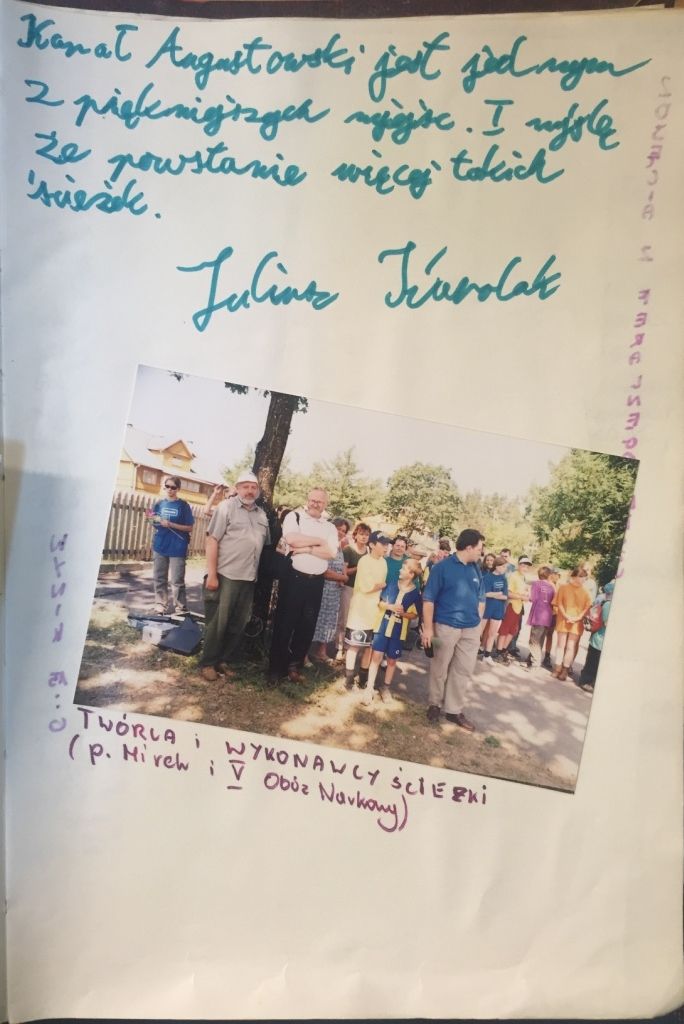 Kanał Augustowski jest jednym
z piękniejszych miejsc. I myślę
że powstanie więcej takich
ścieżek.
Juliusz
TWÓRCA i WYKONAWCY ŚCIEŻKI
(p. Mirek i V Obóz Naukowy)